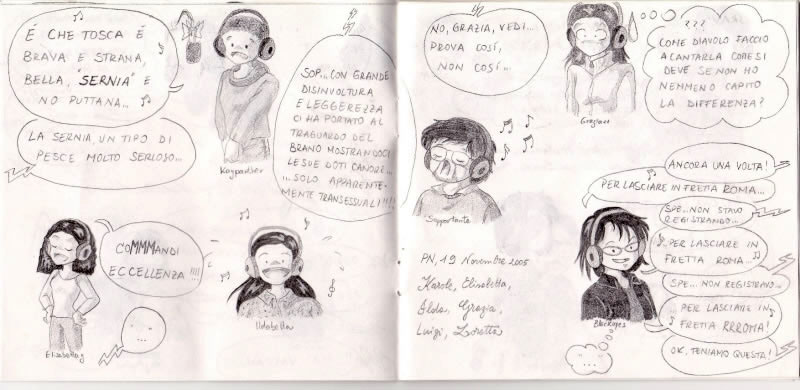 É CHE TOSCA É
BRAVA E STRANA,
BELLA, "SERNIA" E
NO PUTTANA...
LA SERNIA, UN TIPO DI
PESCE MOLTO SERIOSO...
Kaypacher
SOP... CON GRANDE
DISINVOLTURA
E LEGGEREZZA
CI HA PORTATO AL
TRAGUARDO DEL
BRANO MOSTRANDOCI
LE SUE DOTI CANORE...
... SOLO APPARENTE-
MENTE TRANSESSUALI!!!!
COMMMANDI
ECCELLENZA!!!!
...
Ildabella
NO, GRAZIA, VEDI...
PROVA COSÍ,
NON COSÍ...
???
COME DIAVOLO FACCIO
A CANTARLA COME SI
DEVE SE NON HO
NEMMENO CAPITO
LA DIFFERENZA?
Sopportante
ANCORA UNA VOLTA!
PER LASCIARE IN FRETTA ROMA...
SPE... NON STAVO
REGISTRANDO...
PER LASCIARE IN
FRETTA ROMA...
SPE... NON REGISTRAVO...
PER LASCIARE IN
FRETTA RRROMA!
OK, TENIAMO QUESTA!
Blackeyes
...
PN, 19 Novembre 2005
Karole, Elisabetta,
Ilda, Grazia,
Luigi, Loretta